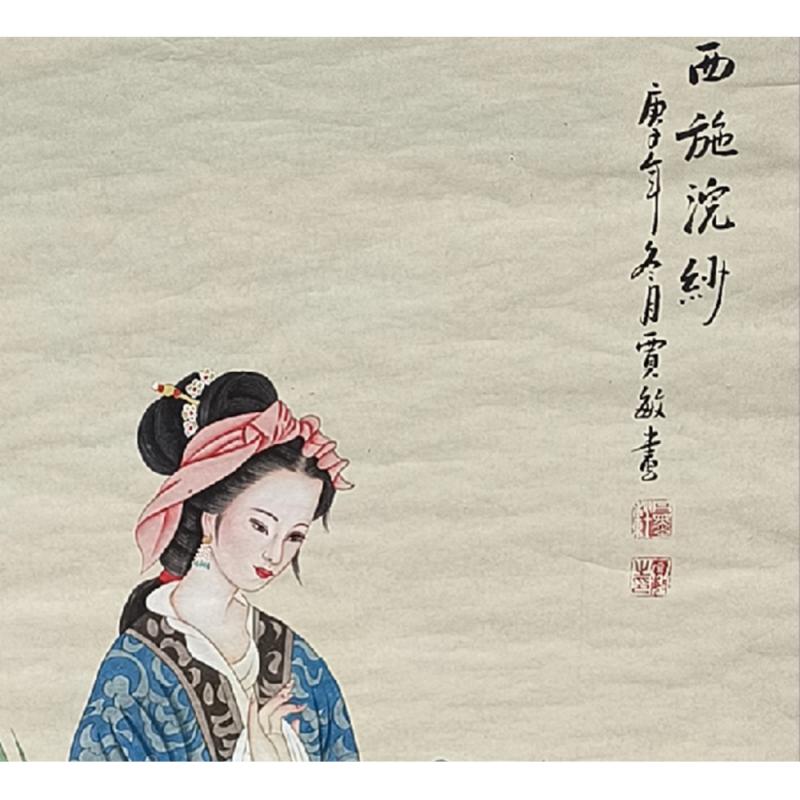 西施浣紗
庚子年冬月賈敏畫